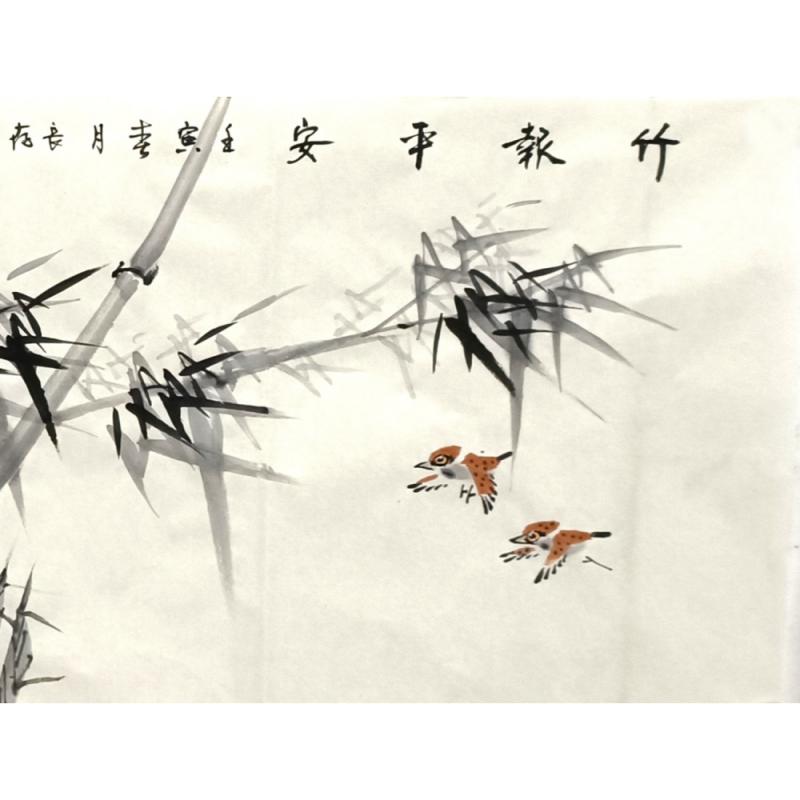 竹報平安 壬寅春月長